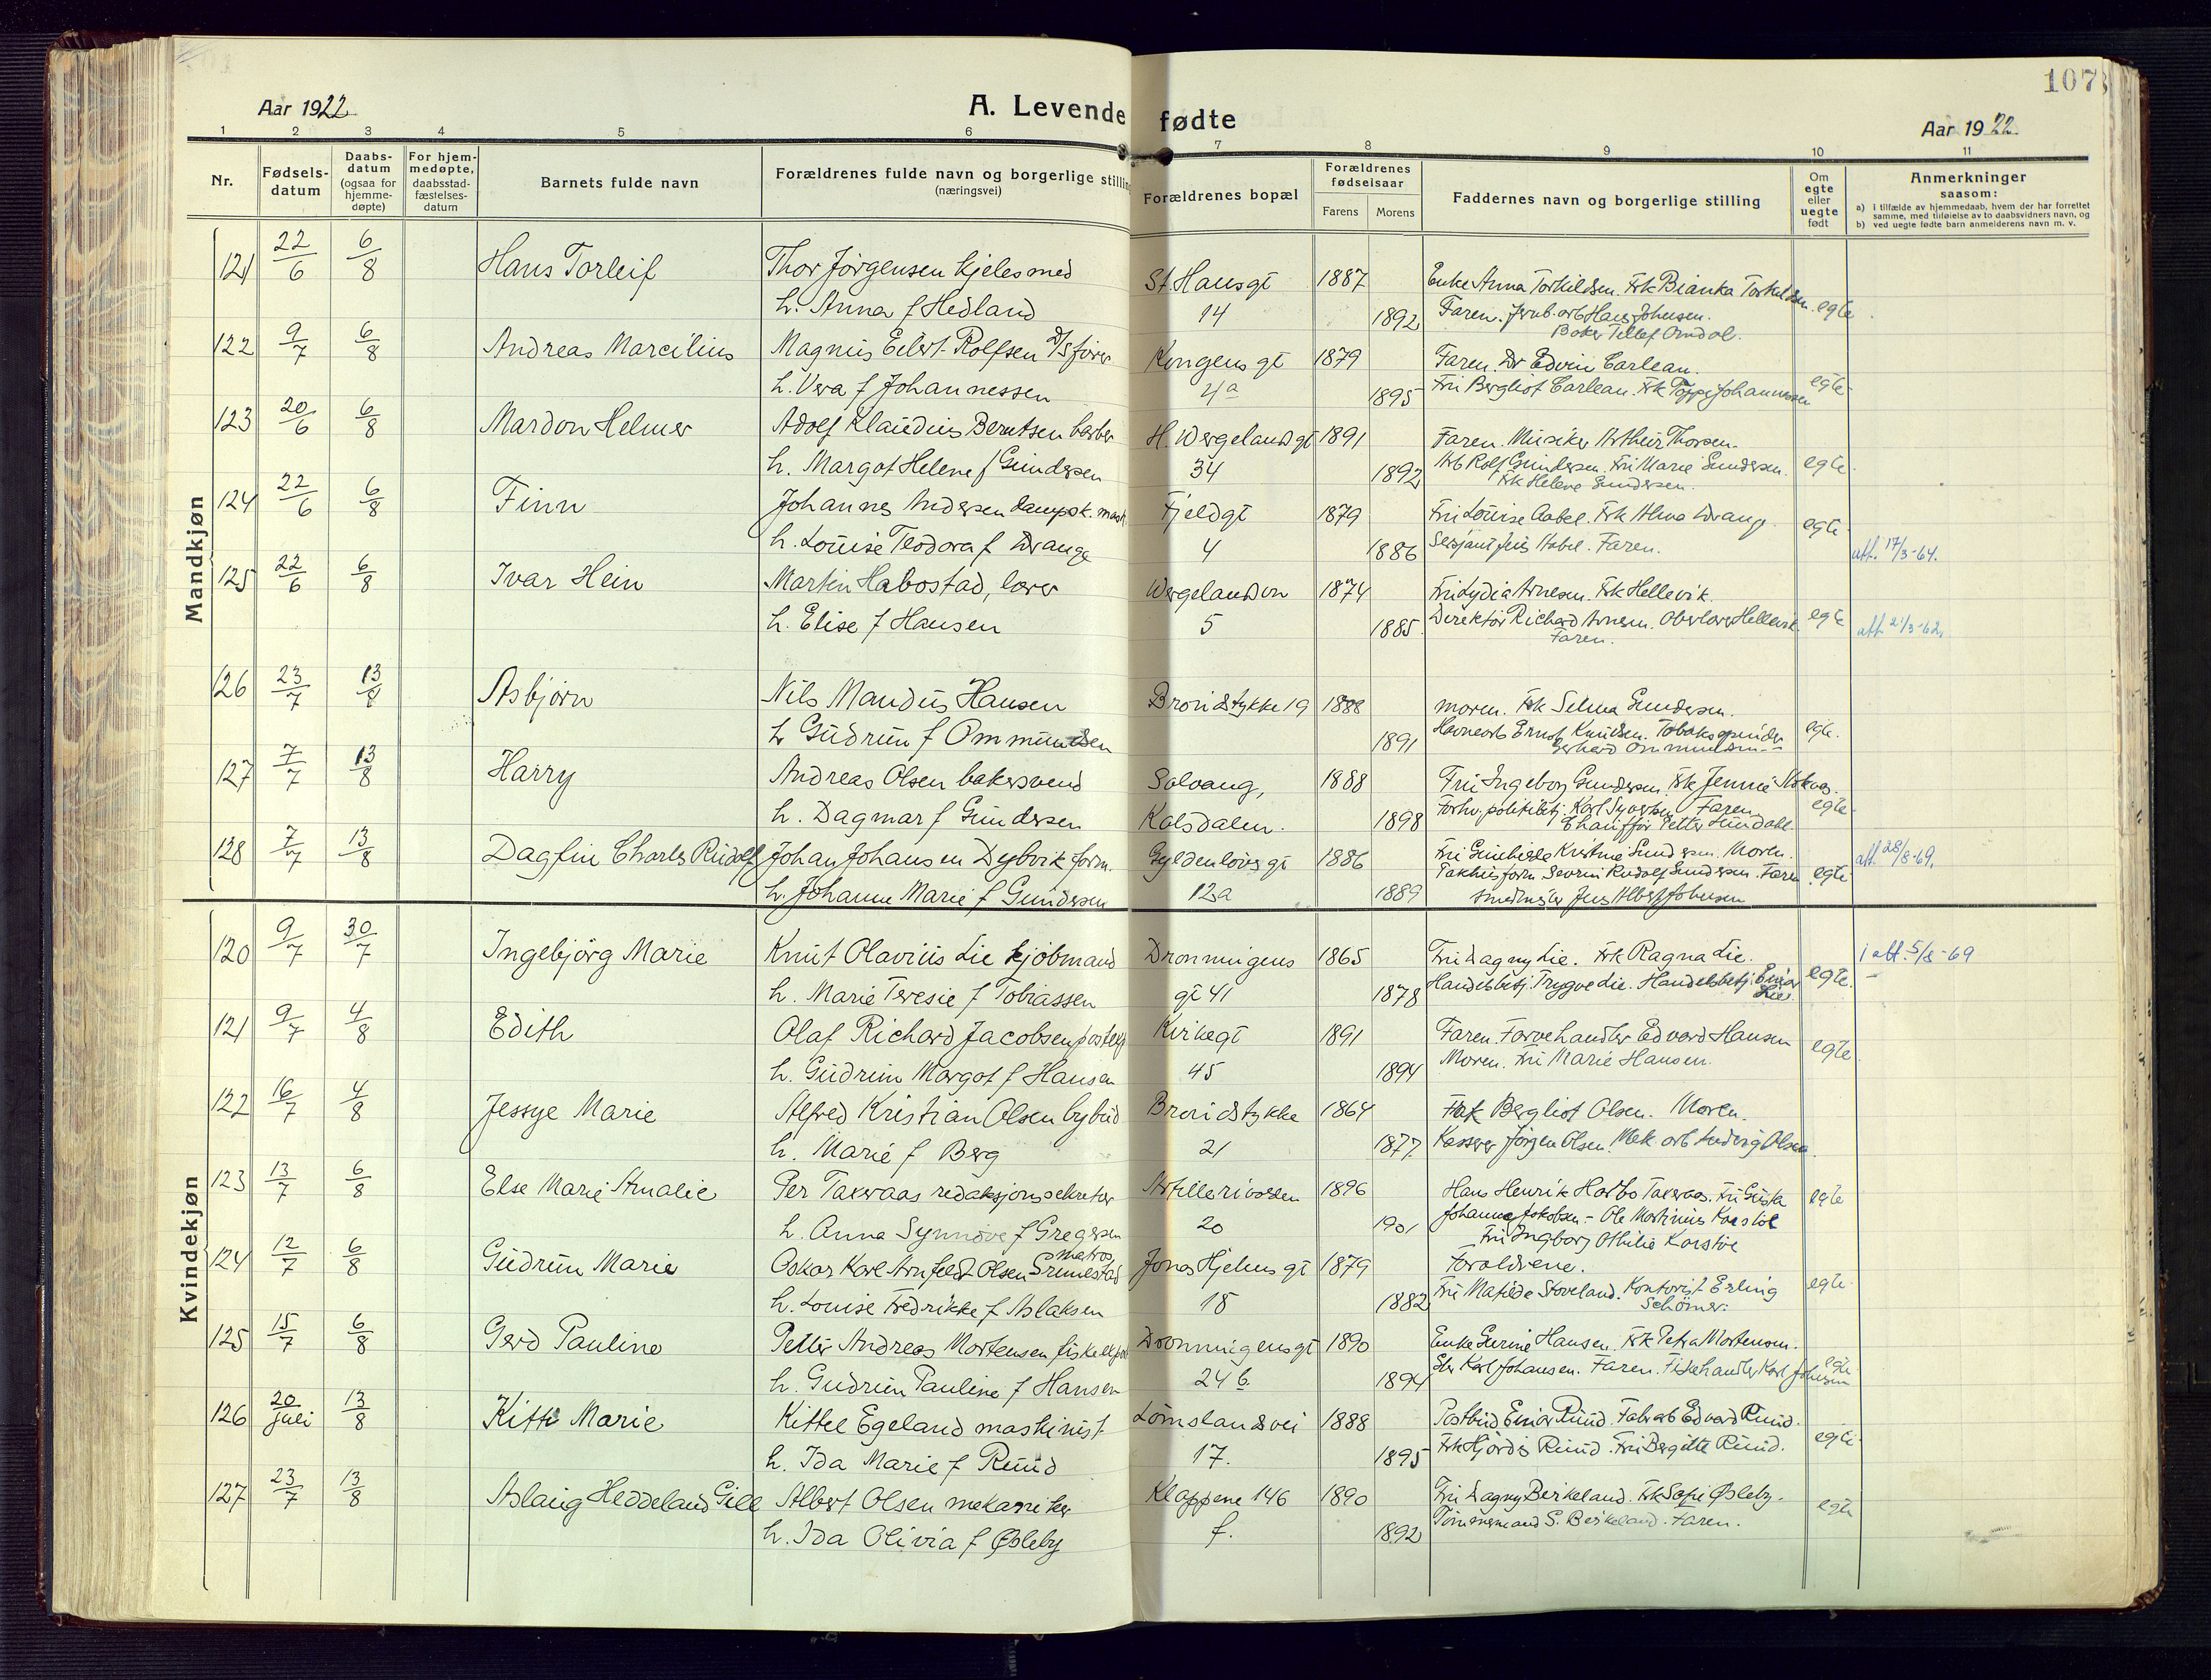 107
Aar 1922
A. Levende fødte
Aar 1922
1 2 3 4 5 6 7 8 9 10 11
Nr.
Fødsels-
datum
Daabs-
datum
(ogsaa for
hjemme-
døpte)
For hjem-
medøpte,
daabsstad-
fæstelses-
datum
Barnets fulde navn
Forældrenes fulde navn og borgerlige stilling
(næringsvei)
Forældrenes bopæl
Forældrenes
fødselsaar
Farens Morens
Faddernes navn og borgerlige stilling
Om
egte
eller
uegte
født
Anmerkninger
saasom:
a) i tilfælde av hjemmedaab, hvem der har forrettet
samme, med tilføielse av to daabsvidners navn, og
b) ved uegte fødte barn anmelderens navn m. v.
Mandkjøn
121 22/6 6/8 Hans Torleif Thor Jørgensen kjelesmed St. Hansgt 1887 Enke Anna Torkildsen. Frk Bianka Torkildsen. egte
h. Anna f Hedland 14 1892 Faren. Jernb.arb Hans Johnsen.
Baker Tellef Omdal.
122 9/7 6/8 Andreas Marcilius Magnus Eilert Rolfsen D/S fører Kongens gt 1879 Faren. Dr Edvin Carlean.
h. Vera f Johannessen 4a 1895 Fru Bergliot Carlean. Frk Toppi Johannessen egte
123 20/6 6/8 Mardon Helmer Adolf Klaudius Berntsen barber H. Wergelandgt 1891 Faren. Musiker Arthur Thorsen.
h. Margot Helene f Gundersen 34 1892 Arb Rolf Gundersen. Fru Marie Gundersen. egte
Frk Helene Gundersen.
124 22/6 6/8 Finn Johannes Andersen dampsk. mask. Fjeldgt 1879 Fru Louise Aabel. Frk Alma Drange. egte
h. Louise Teodora f Drange 4 1886 Sersjant Jens Aabel. Faren. att. 17/3-64.
125 22/6 6/8 Ivar Hein Martin Habostad, lærer Wergelandvn 1874 Fru Lydia Arnesen. Frk Hellevik.
h. Elise f Hansen 5 1885 Direktør Richard Arnesen. Overlærer Hellevik. egte att 21/3-62.
Faren.
126 23/7 13/8 Asbjørn Nils Mandius Hansen Bravidstykke 19 1888 moren. Frk Selma Gundersen.
h Gudrun f Ommundsen 1891 Havnearb Ernst Knudsen. Tobakspinder egte.
Gerhard Ommundsen
127 7/7 13/8 Harry Andreas Olsen bakersvend Solvang, 1888 Fru Ingeborg Gundersen. Frk Jennie
h. Dagmar f Gundersen Kolsdalen. 1898 Forhv. politibtj. Karl Syvertsen Faren egte
Chauffør Petter Lundahl
128 7/7 13/8 Dagfin Charles Rudolf Johan Johansen Dybvik form. Gyldenløvesgt 1886 Fru Gunhilde Kristine Gundersen. Moren. att. 28/8-69.
h. Johanne Marie f Gundersen 12a 1889 Pakhusform Severin Rudolf Gundersen. Faren egte
smedmester Jens Albert Johnsen
Kvindekjøn
120 9/7 30/7 Ingebjørg Marie Knut Olavius Lie kjøbmand Dronningens 1865 Fru Dagny Lie. Frk Ragna Lie. 1 att. 5/8-69
h. Marie Teresie f Tobiassen gt 41 1878 Handelsbetj. Trygve Lie. Handelsbetj. Einar egte.
Lie.
121 9/7 4/8 Edith Olaf Richard Jacobsen postexp Kirkegt 1891 Faren. Farvehandler Edvard Hansen egte
h. Gudrun Margot f Hansen 45 1894 Moren. Fru Marie Hansen.
122 16/7 4/8 Jessye Marie Alfred Kristian Olsen bybud Bravidstykke 1864 Frk Bergliot Olsen. Moren.
h. Marie f Berg 21 1877 Kasserer Jørgen Olsen. Mek. arb Ludvig Olsen.
123 13/7 6/8 Else Marie Amalie Per Takeraas redaksjonssekretær Artilleriveien 1896 Hans Henrik Harbo Taxeraas. Fru Gusta egte
h. Anna Synnøve f Gregersen 20 1901 Johanne Jakobsen - Ole Martinius Karstøe
Fru Ingborg Othilie Karstøe
124 12/7 6/8 Gudrun Marie Oskar Karl Arnfeldt Olsen matros Jonas Hjelmsgt 1879 Forældrene.
h. Louise Fredrikke f Aslaksen 18 1882 Fru Matilde Støveland. Kontorist Erling egte
125 15/7 6/8 Gerd Pauline Petter Andreas Mortensen fiskeexp Dronningensgt 1890 Enke Gurine Hansen. Frk Petra Mortensen.
h. Gudrun Pauline f Hansen 24 b. 1894 Karl Johansen. Faren. Fiskehandler Karl Johnsen egte
126 20/juli 13/8 Kitti Marie Kittel Egeland maskinist Lømslandsvei 1888 Postbud Einar Ruud. Fabr.arb Edvard Ruud.
h. Ida Marie f Ruud 17. 1895 Frk Hjørdis Ruud. Fru Bergitte Ruud. egte
127 23/7 13/8 Aslaug Heddeland Gill Albert Olsen mekaniker Klappene 146 1890 Fru Dagny Birkeland. Frk Sofie Øsleby. egte
h. Ida Olivia f Øsleby f. 1892 Tømmermand S. Birkeland. Faren.